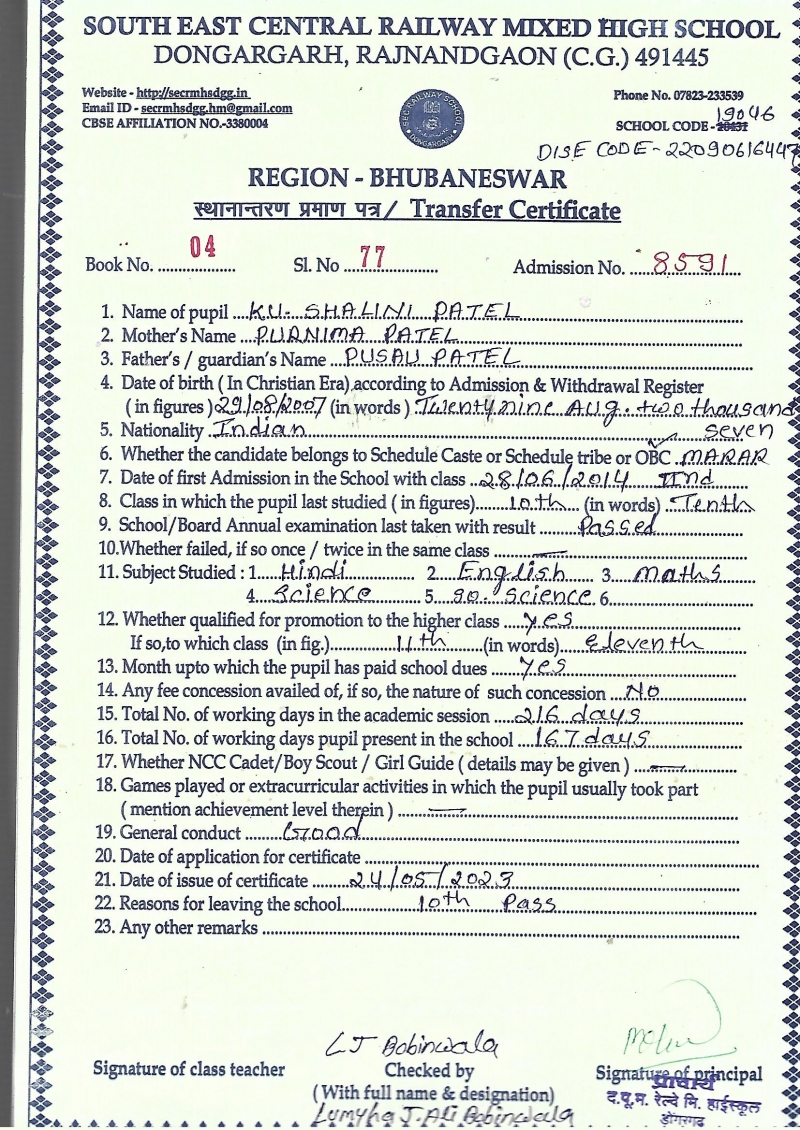 SOUTH EAST CENTRAL RAILWAY MIXED HIGH SCHOOL
DONGARGARH, RAJNANDGAON (C.G.) 491445
Website - http://secrmhsdgg.in
Phone No. 07823-233539
Email ID - secrmhsdgg.hm@gmail.com
19046
CBSE AFFILIATION NO.-3380004
SCHOOL CODE - 20431
SEC RAILWAY SCHOOL
DONGARGARH
DISE CODE - 22090616447
REGION - BHUBANESWAR
स्थानान्तरण प्रमाण पत्र / Transfer Certificate
Book No. 04 Sl. No 77 Admission No. 8591
1. Name of pupil KU. SHALINI PATEL
2. Mother's Name PURNIMA PATEL
3. Father's / guardian's Name PUSAU PATEL
4. Date of birth ( In Christian Era) according to Admission & Withdrawal Register
( in figures ) 29/08/2007 (in words ) Twenty nine Aug. two thousand
5. Nationality Indian seven
6. Whether the candidate belongs to Schedule Caste or Schedule tribe or OBC MARAR
7. Date of first Admission in the School with class 28/06/2014 IInd
8. Class in which the pupil last studied ( in figures) 10th (in words) Tenth
9. School/Board Annual examination last taken with result Passed
10.Whether failed, if so once / twice in the same class —
11. Subject Studied : 1 Hindi 2 English 3 maths
4 Science 5 so. science 6
12. Whether qualified for promotion to the higher class yes
If so,to which class (in fig.) 11th (in words) Eleventh
13. Month upto which the pupil has paid school dues yes
14. Any fee concession availed of, if so, the nature of such concession No
15. Total No. of working days in the academic session 216 days
16. Total No. of working days pupil present in the school 167 days
17. Whether NCC Cadet/Boy Scout / Girl Guide ( details may be given ) —
18. Games played or extracurricular activities in which the pupil usually took part
( mention achievement level therein ) —
19. General conduct Good
20. Date of application for certificate
21. Date of issue of certificate 24/05/2023
22. Reasons for leaving the school 10th Pass
23. Any other remarks
LJ Bobinwala
Signature of class teacher Checked by Signature of principal
(With full name & designation)
प्राचार्य
Lumyha J. Ali Bobinwala
द.पू.म. रेल्वे मि. हाईस्कूल
डोंगरगढ़